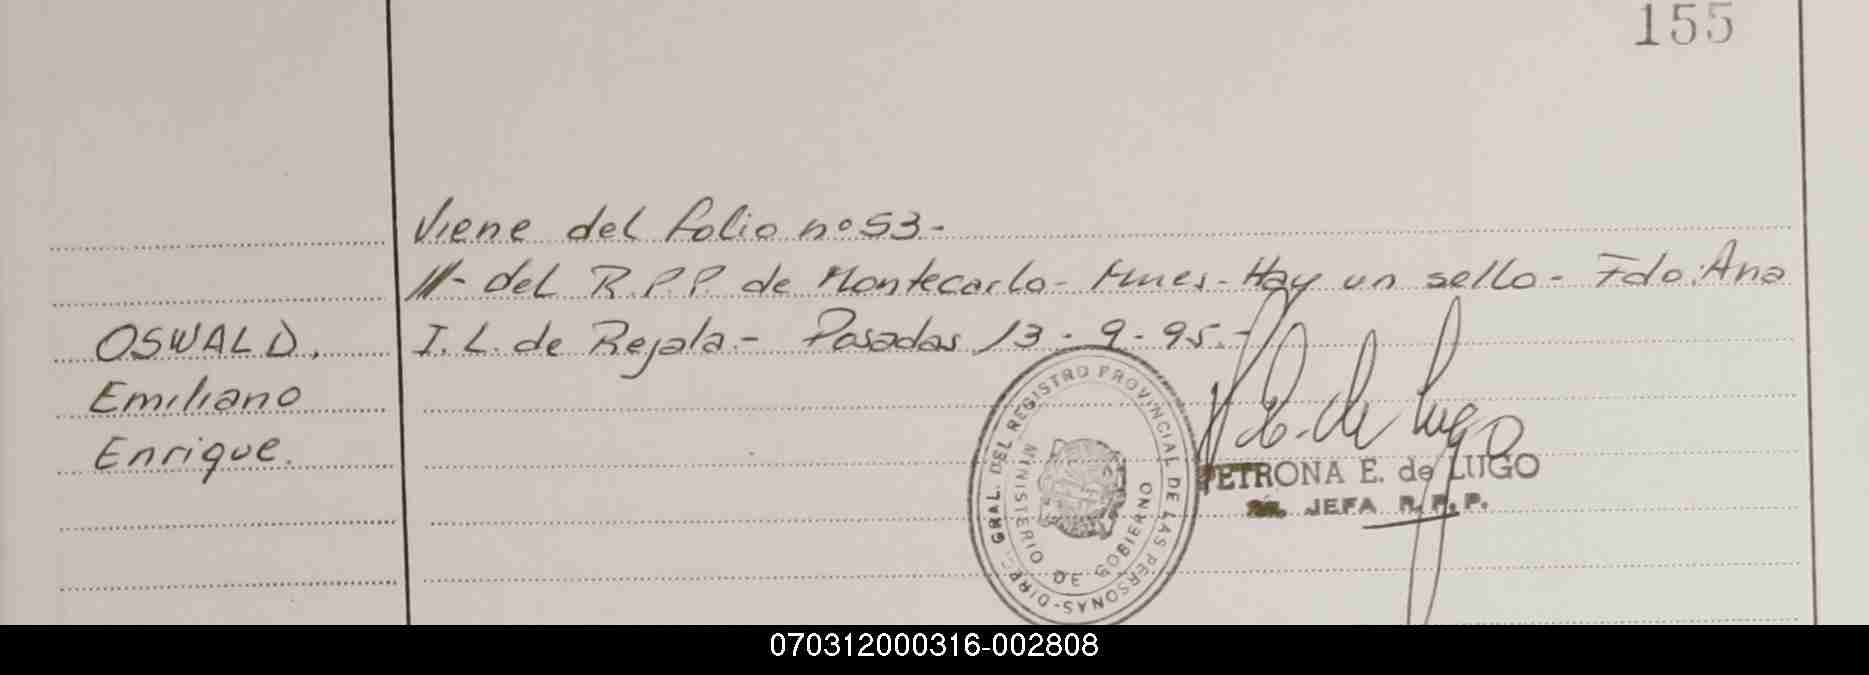 155
Viene del folio nº 53.-
///- del R.P.P. de Montecarlo- Mnes- Hay un sello- Fdo: Ana
OSWALD, I. L. de Rejala.- Posadas 13-9-95.-
Emiliano
Enrique.
DIREC. GRAL. DEL REGISTRO PROVINCIAL DE LAS PERSONAS-
MINISTERIO DE GOBIERNO
E. de Lugo
PETRONA E. de LUGO
JEFA R.P.P.
070312000316-002808